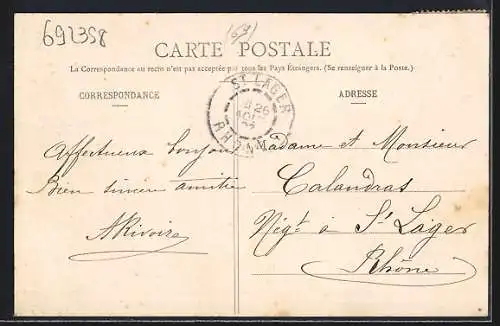 692358
(69)
CARTE POSTALE
La Correspondance au recto n'est pas acceptée par tous les Pays Étrangers. (Se renseigner à la Poste.)
CORRESPONDANCE
ADRESSE
ST LAGER
RHONE
Affectueux bonjour
Bien sincère amitié
ARivoire
Madame et Monsieur
Calandras
Négt à St Lager
Rhône